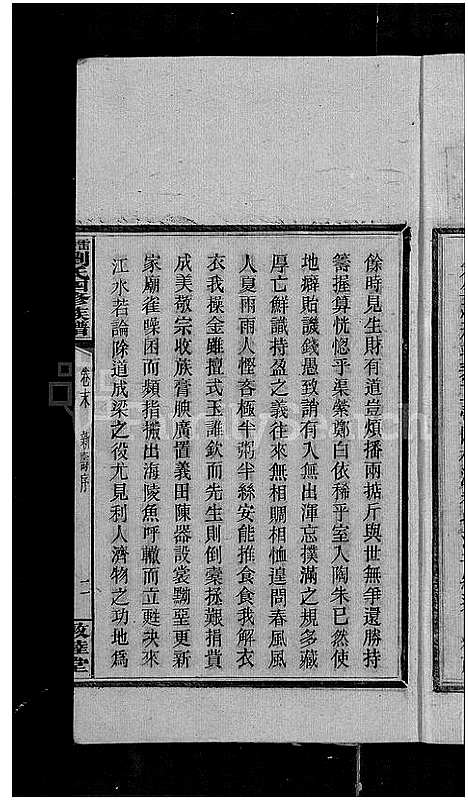 餘時見生財有道豈煩播兩掂斤與世無爭還勝持
籌握算恍惚乎渠紫鄭白依稀乎室入陶朱已然使
地癖貽譏錢愚致誚有入無出渾忘撲滿之規多藏
厚亡鮮識持盈之義往來無相賙相恤遑問春風風
人夏雨雨人慳吝極半粥半絲安能推食食我解衣
衣我操金雖擅式玉誰欽而先生則倒橐拯艱捐貲
成美敬宗收族膏腴廣置義田陳器設裳黝堊更新
家廟雀睬困而頻指搬出海陵魚呼轍而立甦決來
江水若論除道成梁之役尤見利人濟物之功地為
劉氏四修族譜
卷末
壽序
二
敦睦堂